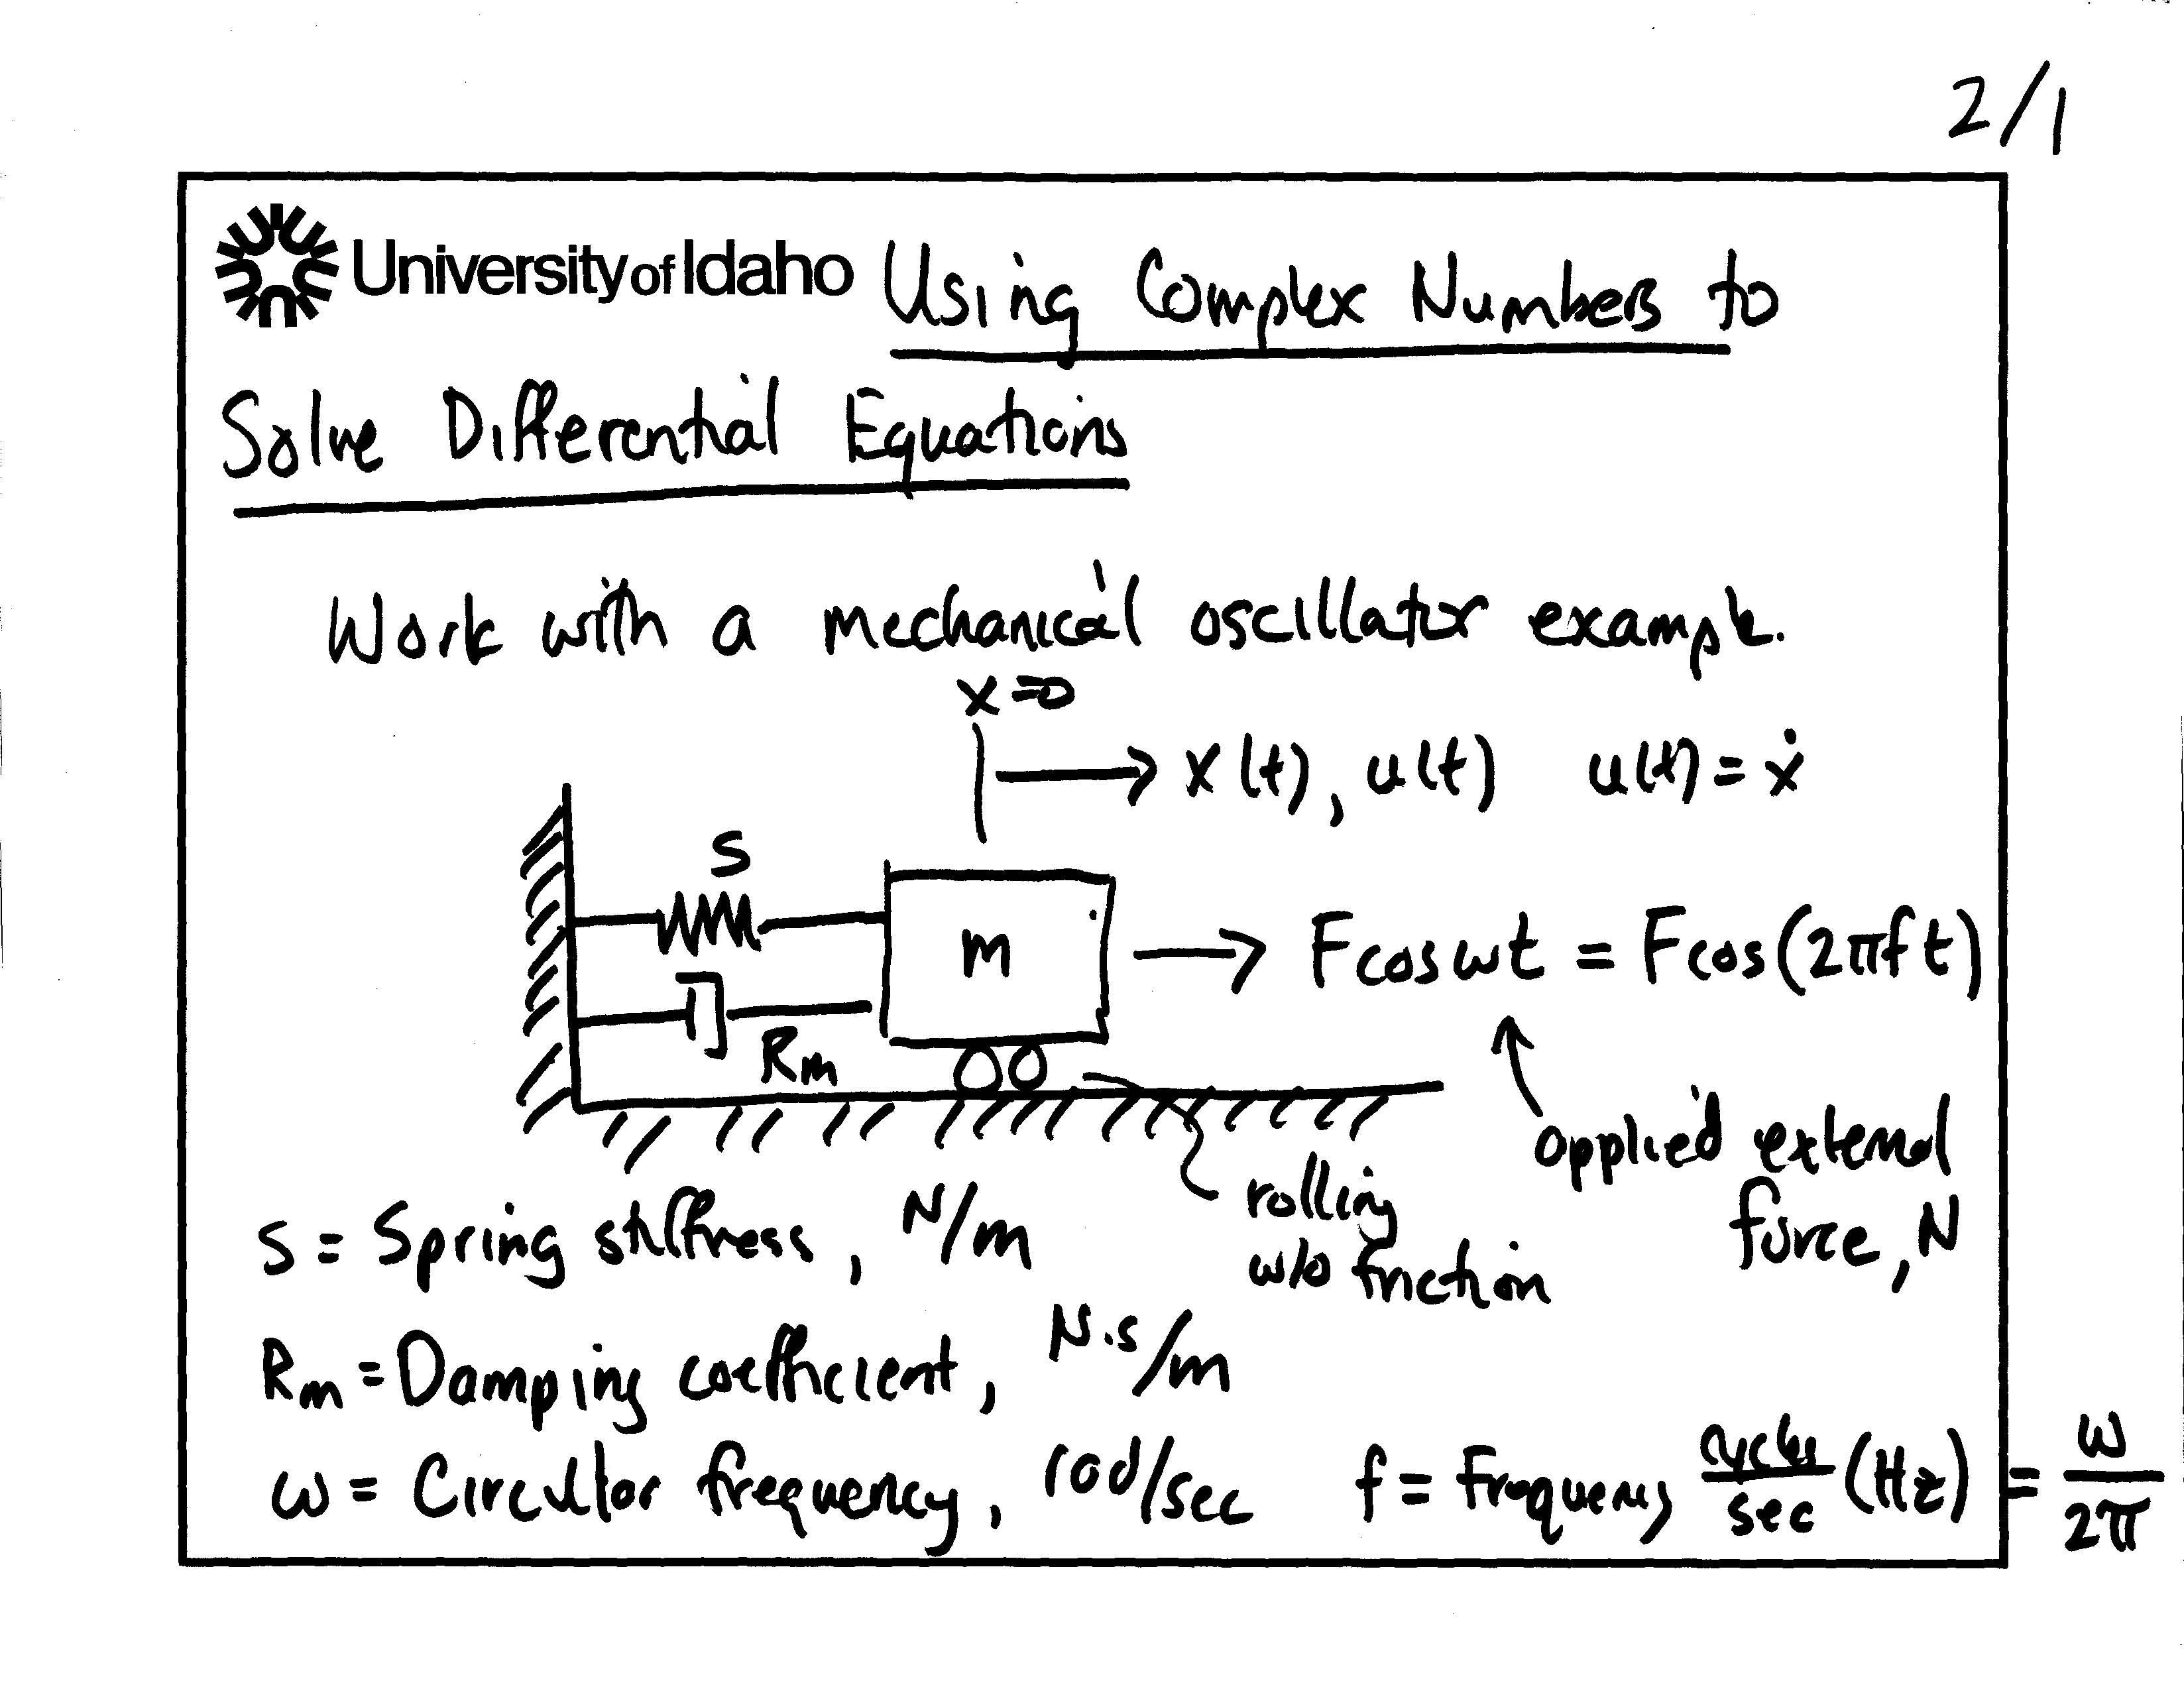 2/1
University of Idaho Using Complex Numbers to
Solve Differential Equations
Work with a mechanical oscillator example.
x=0
x(t), u(t) u(t) = ẋ
s
m
F cos ωt = F cos(2πft)
Rm
applied external
force, N
rolling
w/o friction
s = Spring stiffness, N/m
Rm = Damping coefficient, N·s/m
ω = Circular frequency, rad/sec f = Frequency cycles/sec (Hz) = ω/2π